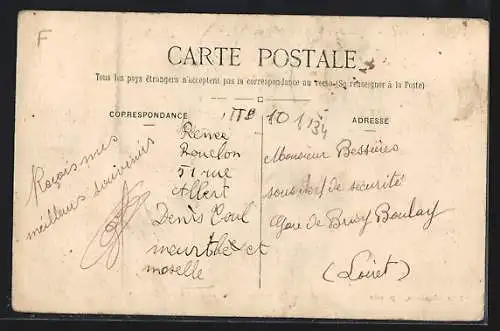 F
CARTE POSTALE
Tous les pays étrangers n'acceptent pas la correspondance au verso (Se renseigner à la Poste)
CORRESPONDANCE
ADRESSE
101134
meilleurs souvenirs
Renée
Rouelon
51 rue
Albert
Denis Coul
meurthe et
moselle
Monsieur Bessières
sous chef de sécurité
Gare de Briey Boulay
(Loiret)